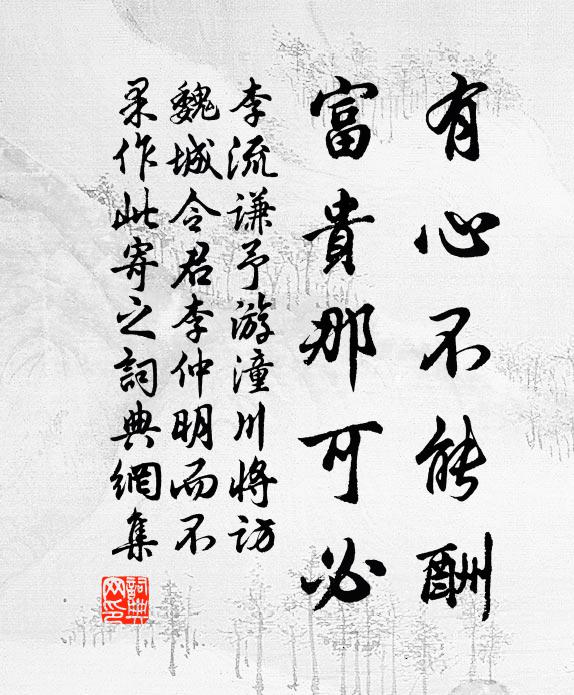 有心不能酬
富貴那可必
李流謙予游潼川將訪
魏城令君李仲明而不
果作此寄之詞典網集
詞典
网印